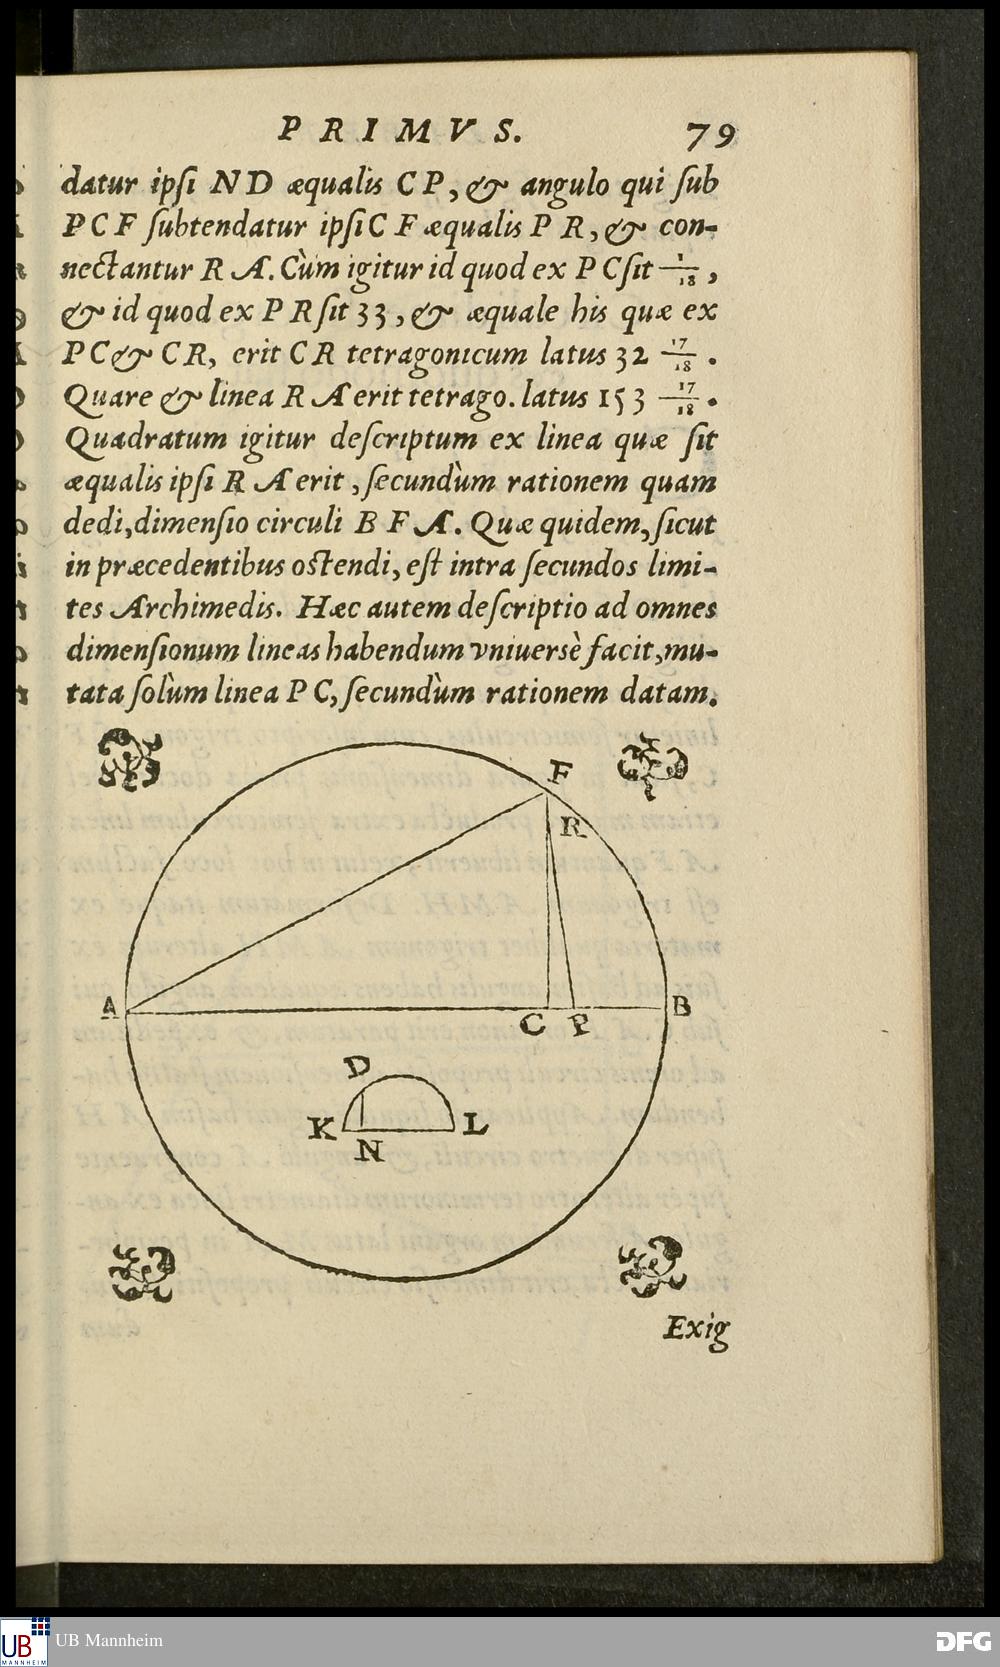 PRIMVS. 79
datur ipſi ND æqualis CP, & angulo qui ſub
PCF ſubtendatur ipſi CF æqualis PR, & con-
nectantur RA. Cùm igitur id quod ex PC ſit 1/18,
& id quod ex PR ſit 33, & æquale his quæ ex
PC & CR, erit CR tetragonicum latus 32 17/18.
Quare & linea RA erit tetrago. latus 153 17/18.
Quadratum igitur deſcriptum ex linea quæ ſit
æqualis ipſi RA erit, ſecundùm rationem quam
dedi, dimenſio circuli BFA. Quæ quidem, ſicut
in præcedentibus oſtendi, eſt intra ſecundos limi-
tes Archimedis. Hæc autem deſcriptio ad omnes
dimenſionum lineas habendum vniuersè facit, mu-
tata ſolùm linea PC, ſecundùm rationem datam.
F
R
A
C P
B
D
K
N
L
Exig
UB
MANNHEIM
UB Mannheim
DFG